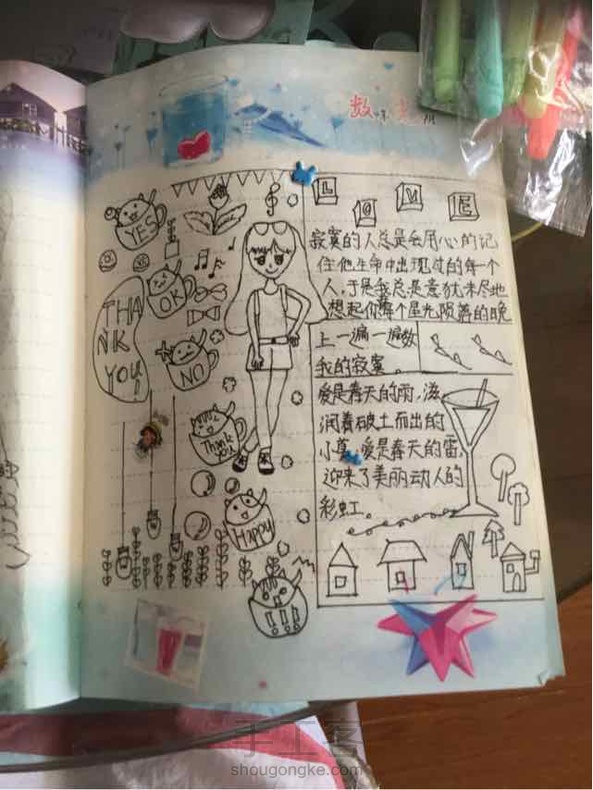 YES
OK
THA
NK
YOU!
NO
Thank
you
Happy
LOVE
寂寞的人总是会用心的记
住他生命中出现过的每一个
人,于是我总是意犹未尽地
想起你每个星光陨落的晚
上一遍一遍数
我的寂寞。
爱是春天的雨,滋
润着破土而出的
小草,爱是春天的雷,
迎来了美丽动人的
彩虹。
手工客
shougongke.com